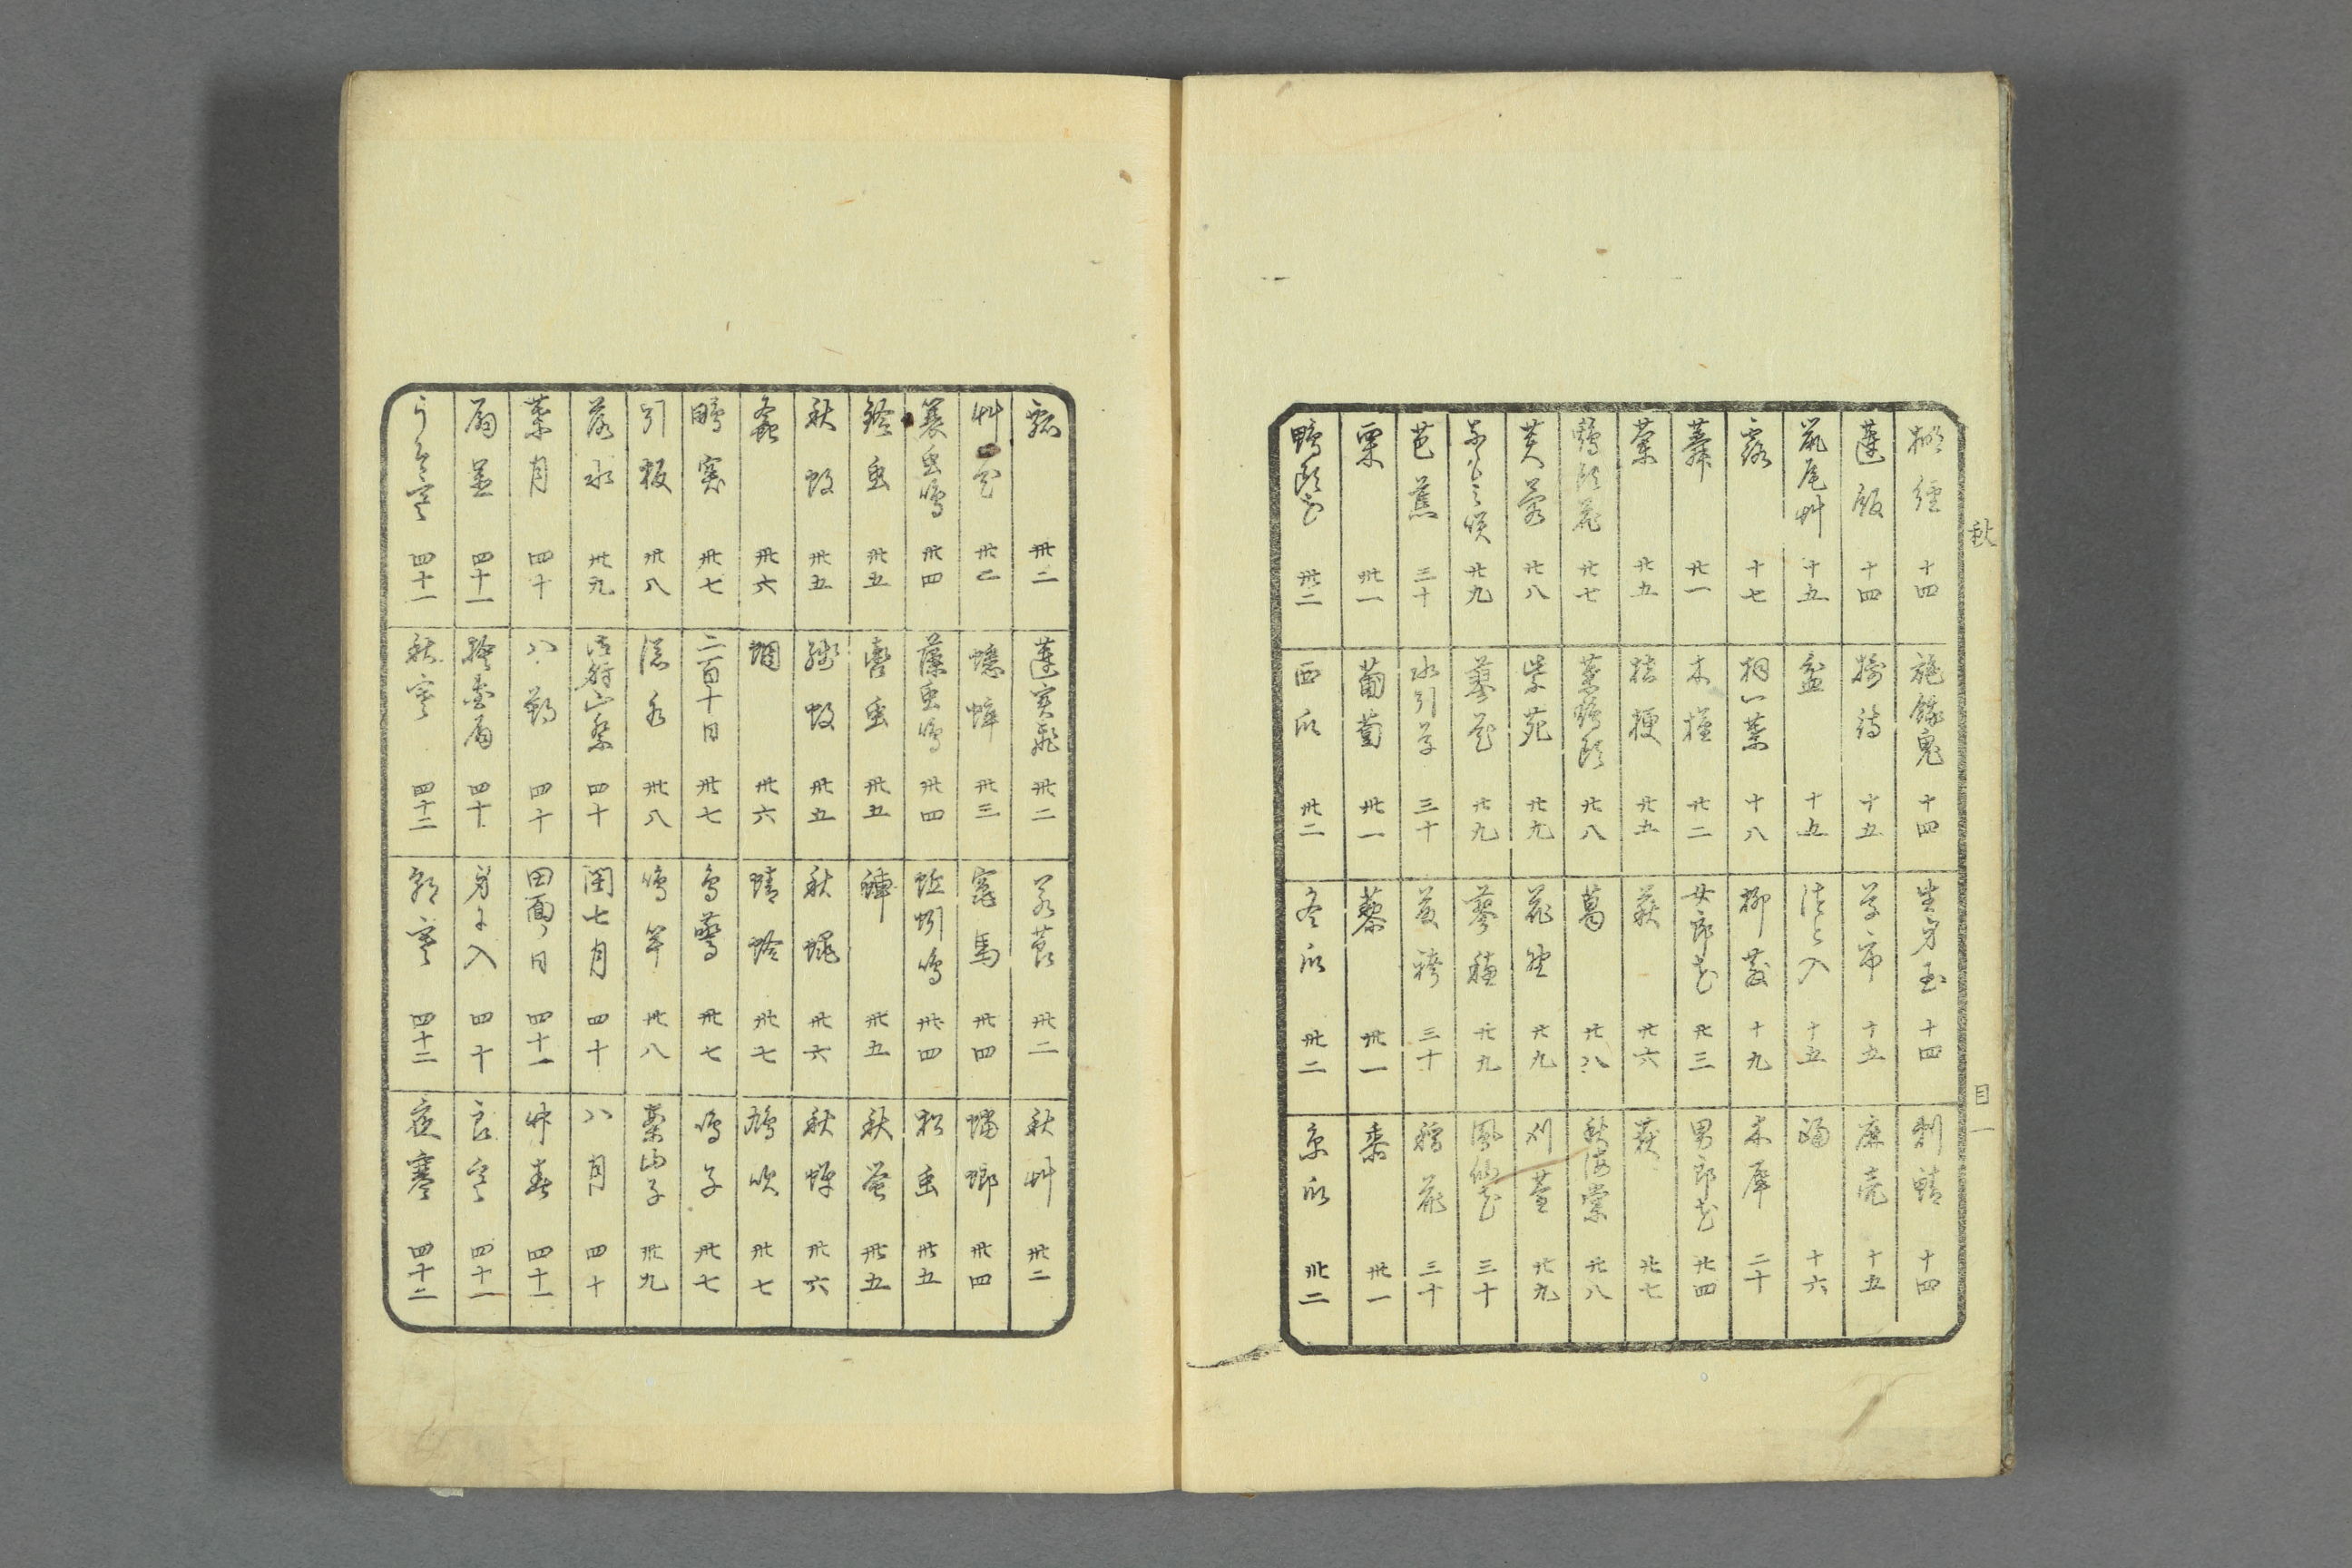 秋
目一
棚經 十四
施餓鬼 十四
生身玉 十四
刺鯖 十四
蓮飯 十四
摂待 十五
草市 十五
麻売 十五
鼠尾艸 十五
盆 十五
十五
踊 十六
露 十七
桐一葉 十八
柳散 十九
木犀 二十
蕣 廿一
木槿 廿二
女郎花 廿三
男郎花 廿四
蘭 廿五
桔梗 廿五
萩 廿六
荻 廿七
鶏頭花 廿七
葉鶏頭 廿八
葛 廿八
秋海棠 廿八
芙蓉 廿八
紫苑 廿九
花野 廿九
刈萱 廿九
廿九
蓼花 廿九
蓼穂 廿九
鳳仙花 三十
芭蕉 三十
水引草 三十
藤袴 三十
稲花 三十
栗 卅一
葡萄 卅一
藜 卅一
黍 卅一
鴨頭草 卅二
西瓜 卅二
冬瓜 卅二
糸瓜 卅二
瓢 卅二
蓮実飛 卅二
若莨 卅二
秋艸 卅二
艸花 卅二
蟋蟀 卅三
竃馬 卅四
蟷螂 卅四
簑虫鳴 卅四
藻虫鳴 卅四
蚯蚓鳴 卅四
松虫 卅五
鈴虫 卅五
轡虫 卅五
卅五
秋蛍 卅五
秋蚊 卅五
卅五
秋蠅 卅六
秋蝉 卅六
螽 卅六
蜩 卅六
蜻蛉 卅七
鳩吹 卅七
鴫突 卅七
二百十日 卅七
鳥驚 卅七
鳴子 卅七
引板 卅八
添水 卅八
鳴竿 卅八
案山子 卅九
落水 卅九
御射山祭 四十
閏七月 四十
八月 四十
葉月 四十
八朔 四十
田面日 四十一
四十一
扇置 四十一
捨団扇 四十
身に入 四十
四十一
うそ寒 四十一
秋寒 四十二
朝寒 四十二
夜寒 四十二